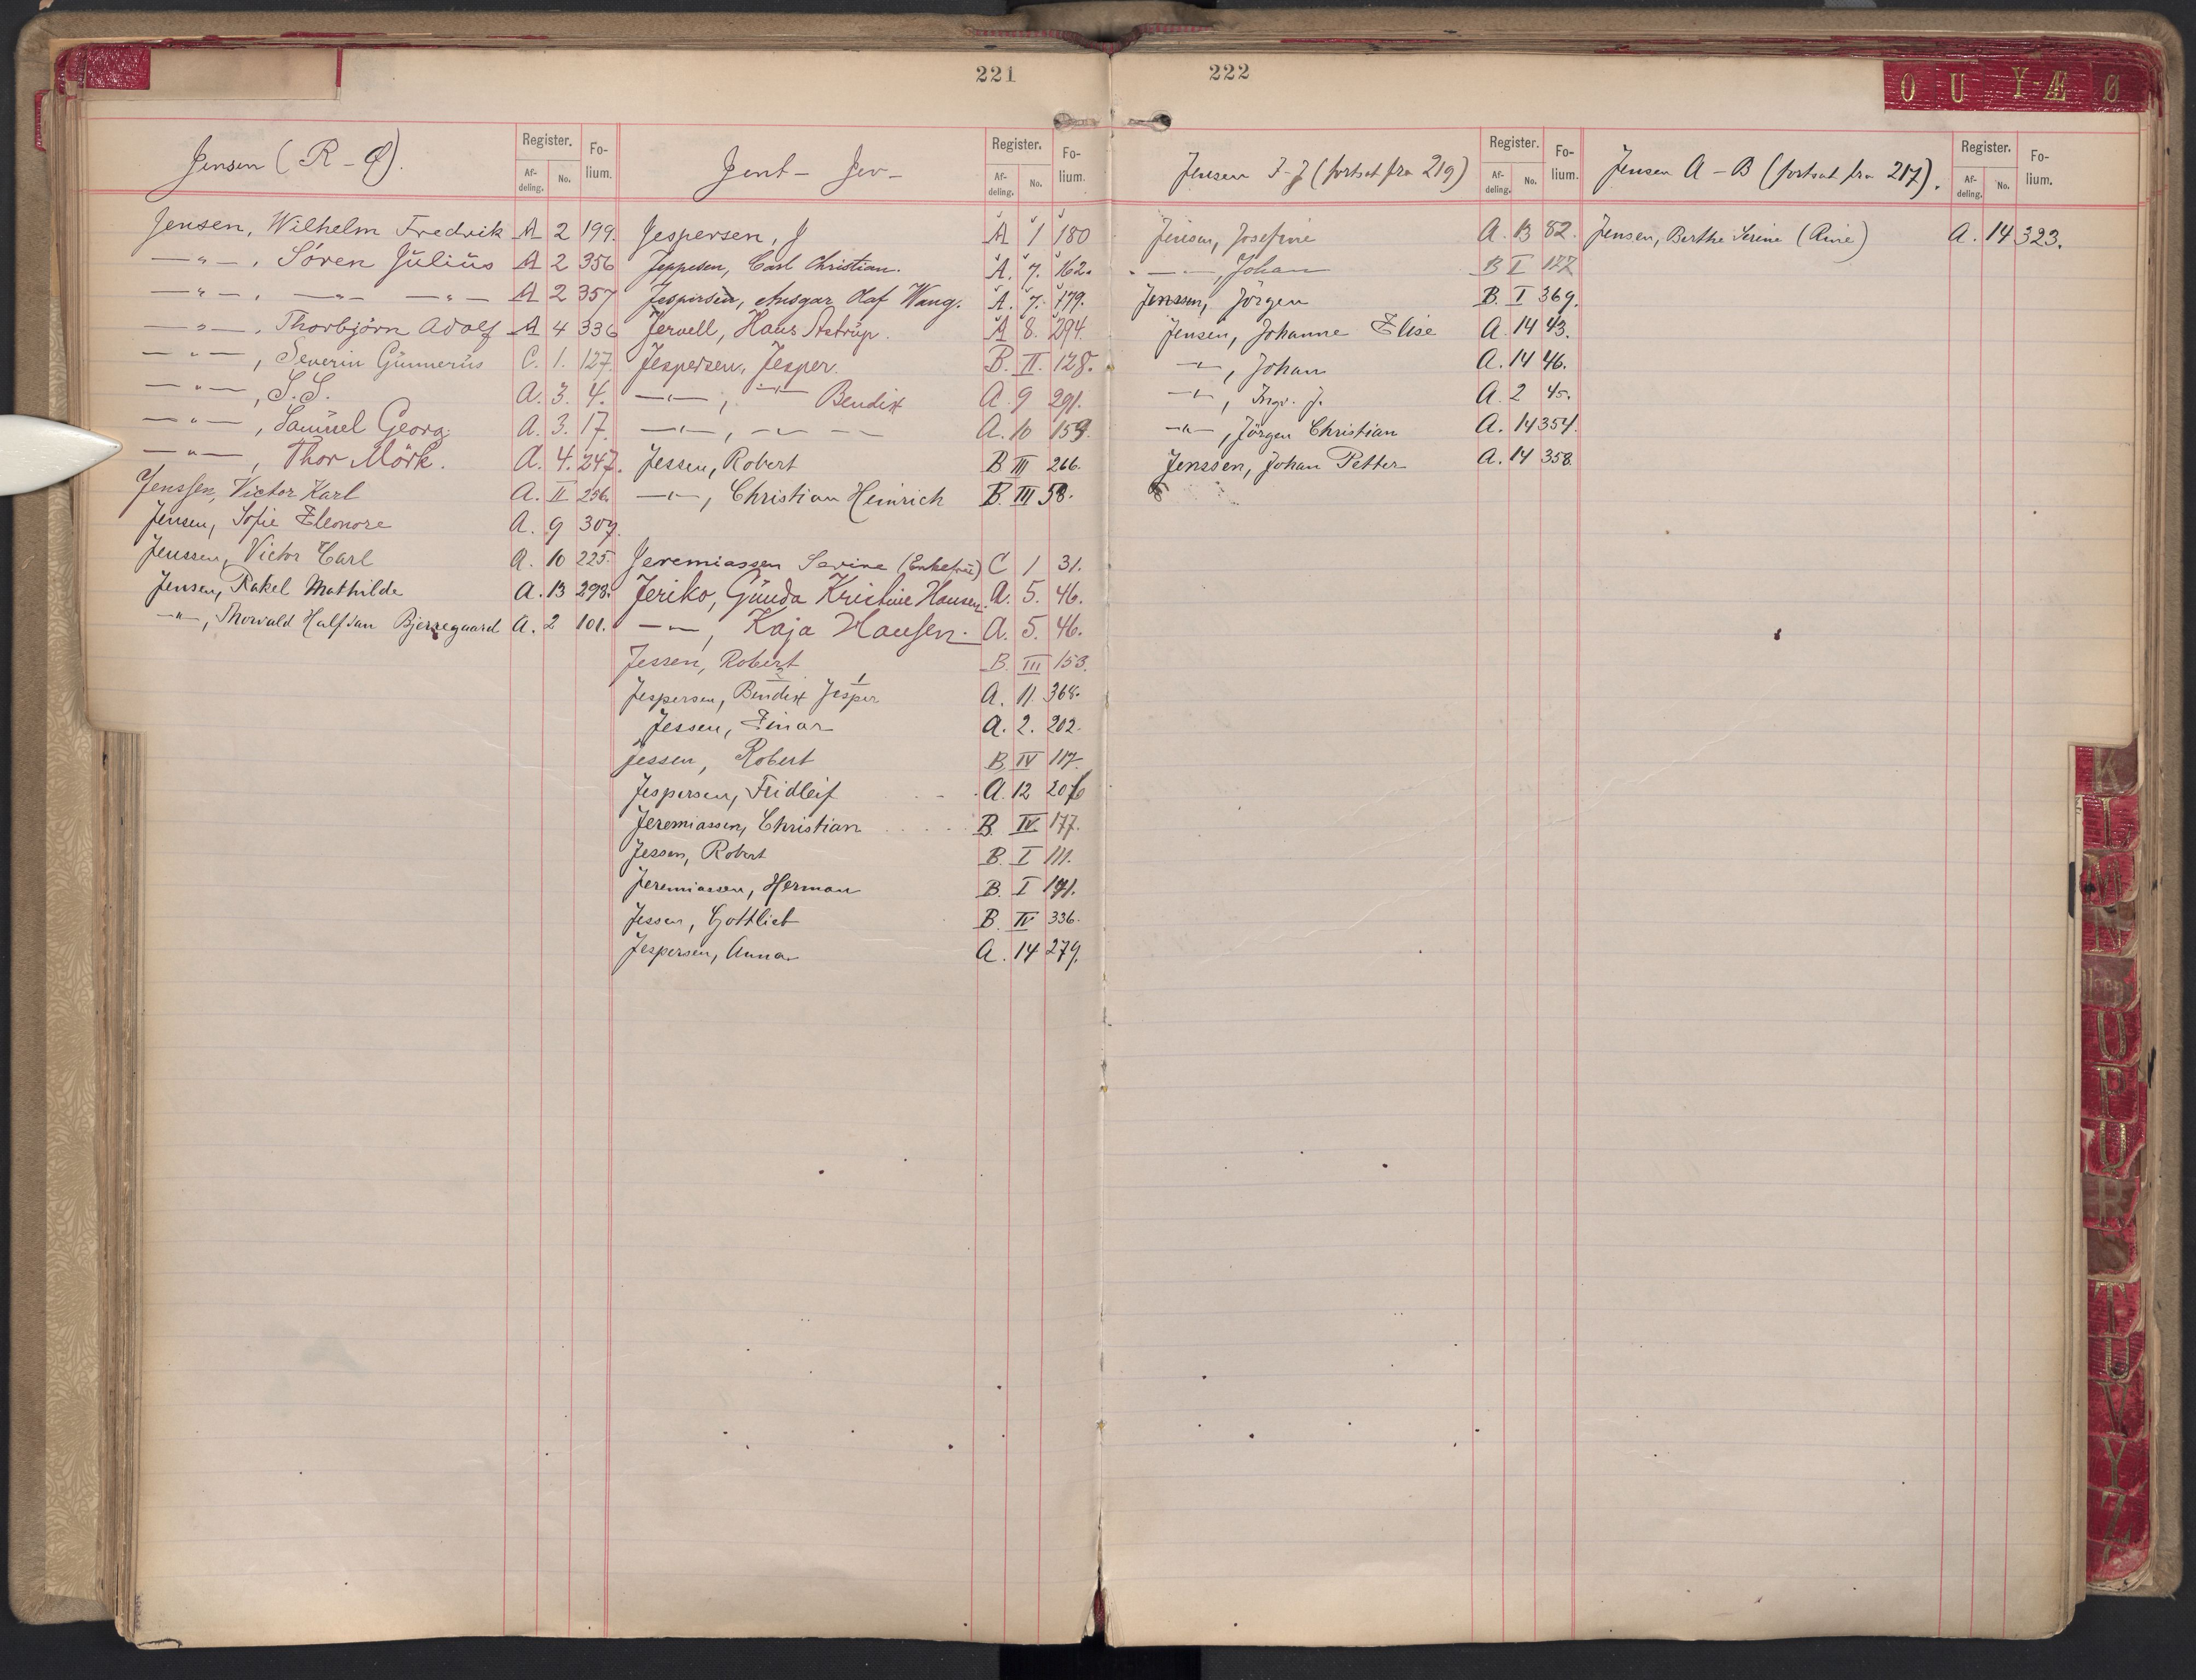 221
Jensen (R - Ø).
Register. Folium.
Afdeling. No.
Jensen, Wilhelm Fredrik A 2 199.
—"—, Sören Julius A 2 356
—"—, —"— —"— A 2 357
—"—, Thorbjörn Adolf A 4 336
—"—, Severin Gunnerus C. 1. 127.
—"—, S. S. A. 3. 4.
—"—, Samuel Georg. A. 3. 17.
—"—, Thor Mörk. A. 4. 247.
Jenssen, Victor Karl A. II 256.
Jensen, Sofie Eleonore A. 9 307.
Jenssen, Victor Carl A. 10 225.
Jensen, Rakel Mathilde A. 13 298.
—"—, Thorvald Halfdan Bjerregaard A. 2 101.
Jent - Jev -
Register. Folium.
Afdeling. No.
Jespersen, J A 1 180
Jeppesen, Carl Christian. A. 7. 162.
Jespersen, Ansgar Olaf Wang. A. 7. 179.
Jervell, Hans Astrup. A 8. 294.
Jespersen, Jesper. B. II. 128.
—"—, —"— Bendix A. 9 291.
—"—, —"— —"— A. 10 159.
Jessen, Robert B III 266.
—"—, Christian Heinrich B. III 58.
Jeremiassen Serine (Enkefru) C 1 31.
Jeriko, Gunda Kristine Hansen. A. 5. 46.
—"—, Kaja Hansen. A. 5. 46.
Jessen, Robert B. III 153.
Jespersen, Bendix Jesper A. 11. 368.
Jessen, Einar A. 2. 202.
Jessen, Robert B. IV 117.
Jespersen, Fridleif A. 12 206
Jeremiassen, Christian B. IV. 177.
Jessen, Robert B. I 111.
Jeremiassen, Herman B. I 191.
Jessen, Gottlieb B. IV 336.
Jespersen, Anna A. 14 279.
222
Jensen I-J (fortsat fra 219)
Register. Folium.
Afdeling. No.
Jensen, Josefine A. 13 82.
—"—, Johan B I 177
Jenssen, Jörgen B. I 369.
Jensen, Johanne Elise A. 14 43.
—"—, Johan A. 14 46.
—"—, Ingv. J. A. 2 45.
—"—, Jörgen Christian A. 14 354.
Jenssen, Johan Petter A. 14 358.
Jensen A - B (fortsat fra 217).
Register. Folium.
Afdeling. No.
Jensen, Berthe Serine (Rine) A. 14 323.
O U Y Æ Ø
K
L
M
N
O
P
U
R
T
U
V
Y
Z